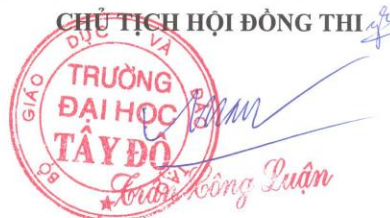 CHỦ TỊCH HỘI ĐỒNG THI
BỘ GIÁO DỤC VÀ ĐÀO TẠO
TRƯỜNG
ĐẠI HỌC
TÂY ĐÔ
Trần Công Luận